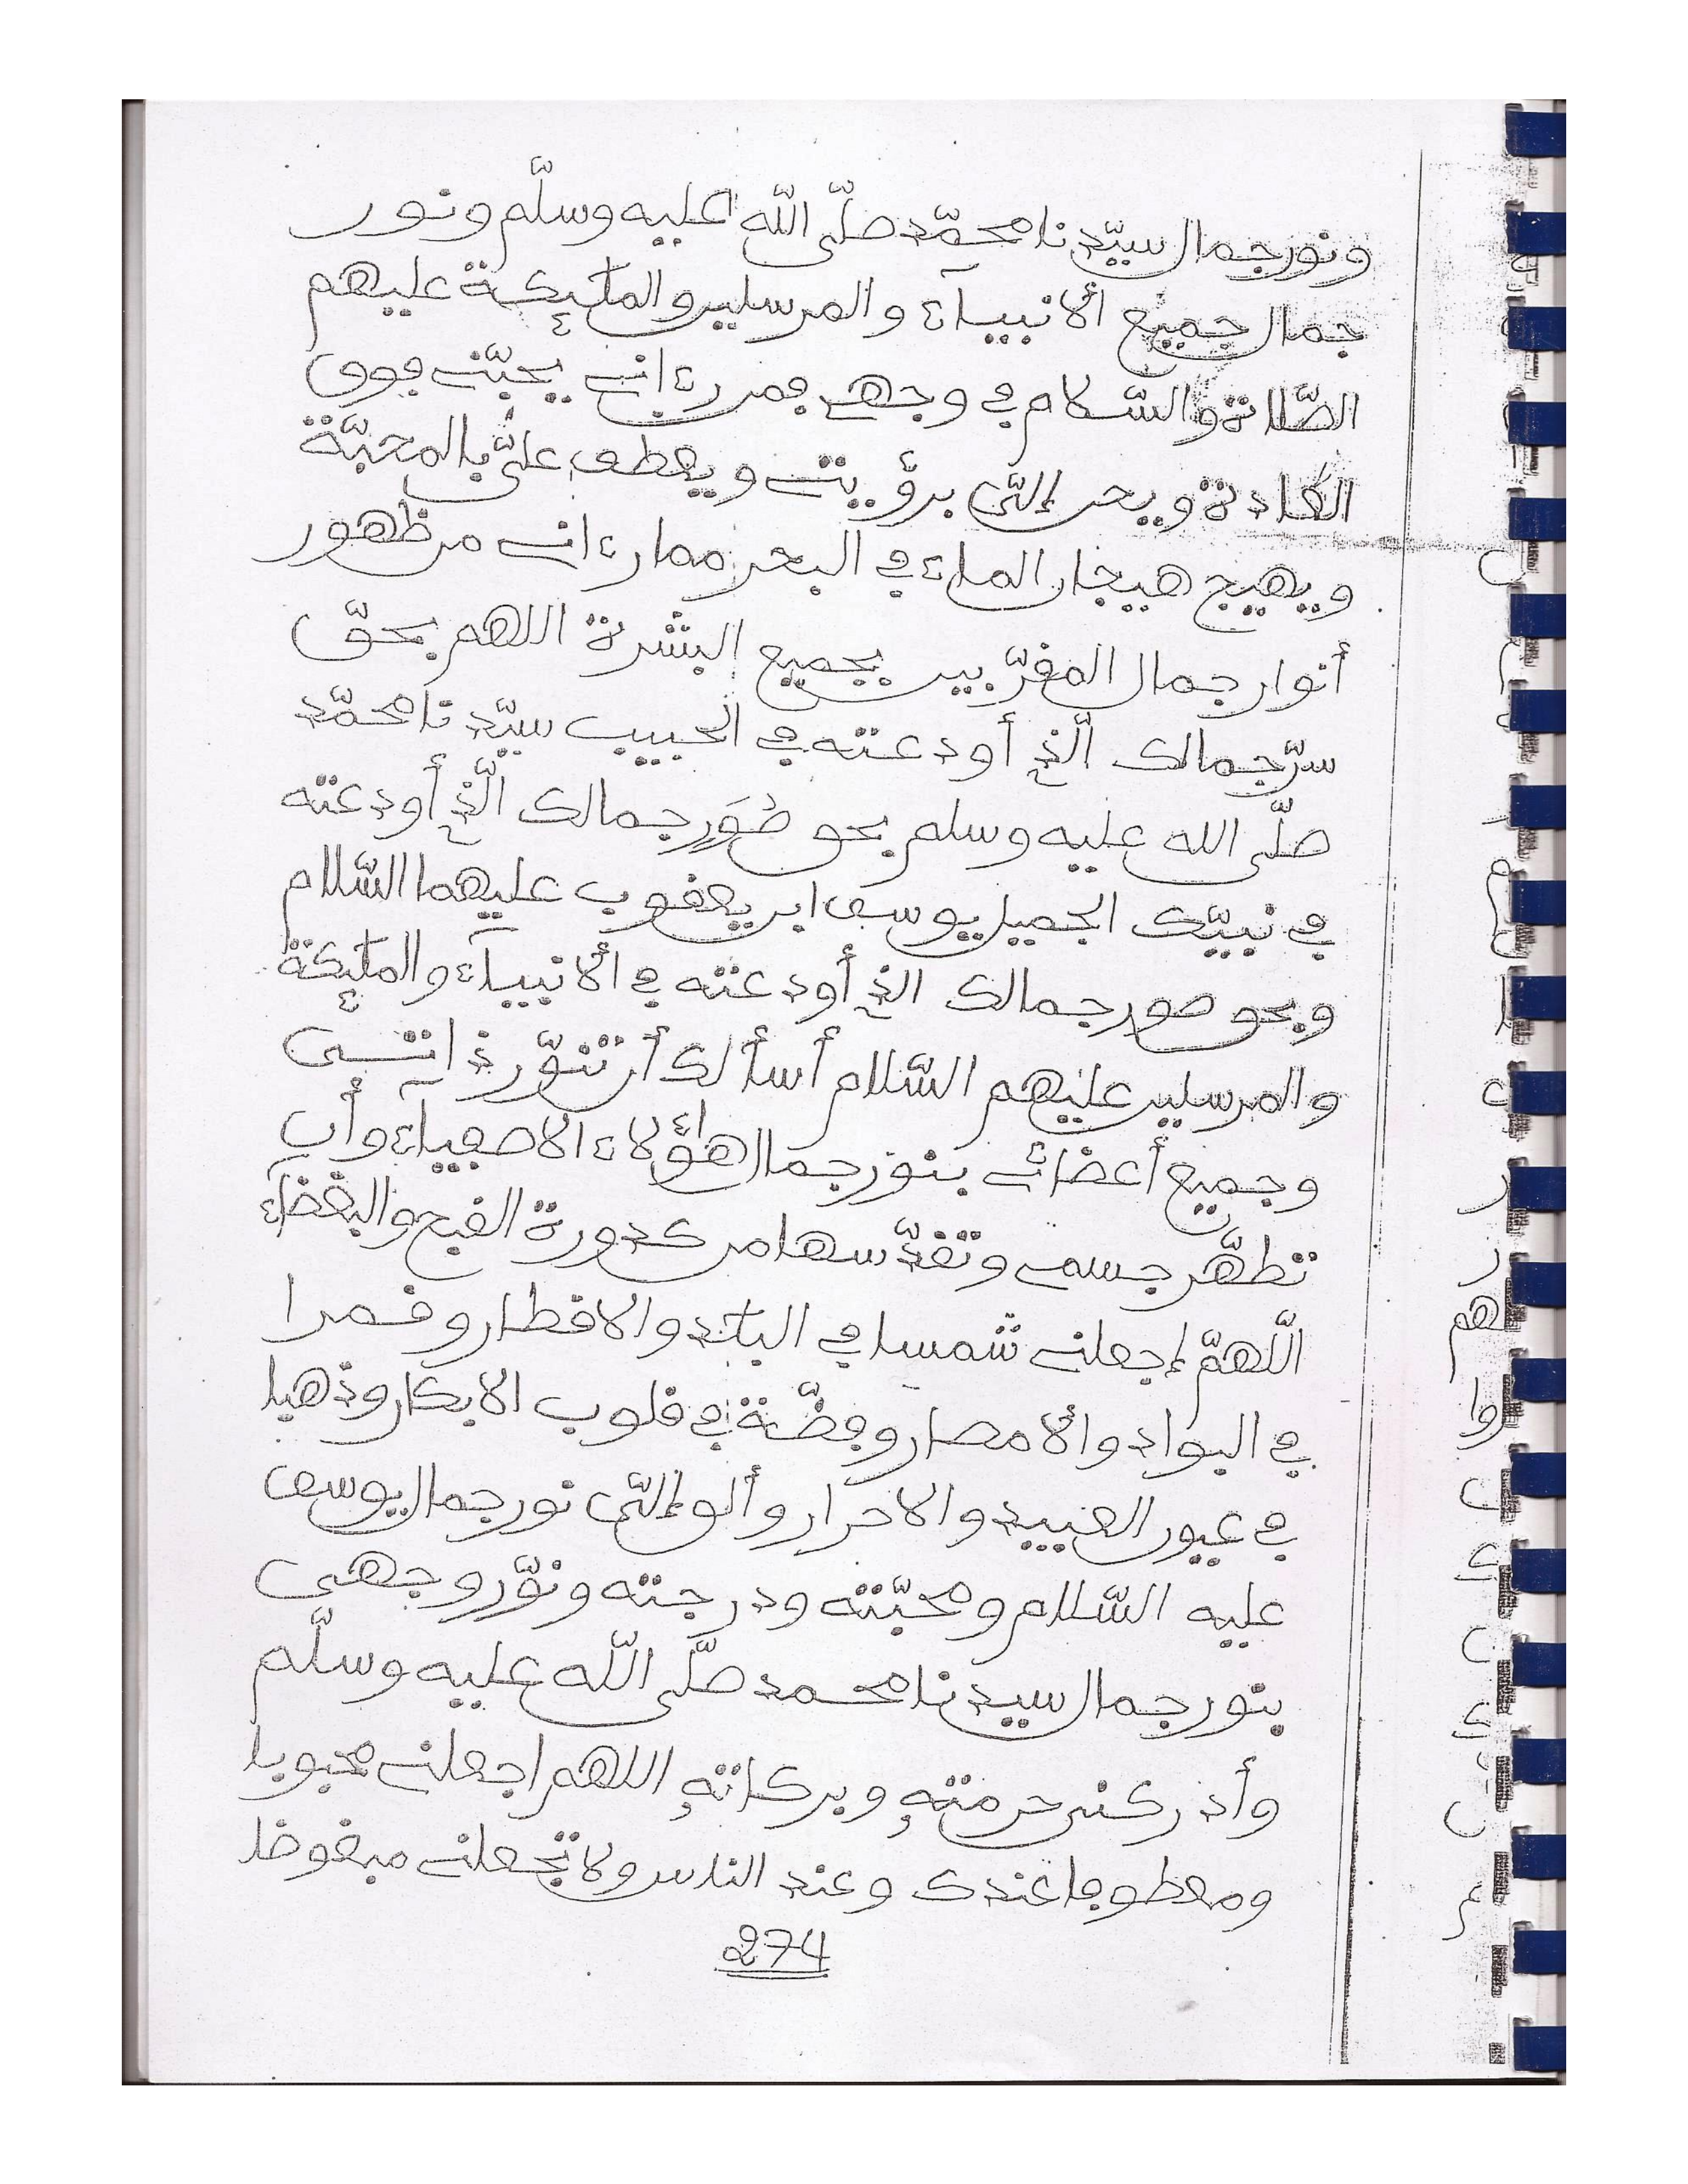 ونور جمال سيّدنا محمّد صلّى اللّه عليه وسلّم ونور
جمال جميع الأنبياء والمرسلين والملئكة عليهم
الصّلاة والسّلام في وجهي فمن رءاني يحبّني فوق
العادة ويحن إلىّ برؤيتي ويعطف علىّ بالمحبّة
ويهيج هيجان الماء في البحر مما رءاني من ظهور
أنوار جمال المقرّبين بجميع البشرة اللهم بحقّ
سرّ جمالك الّذي أودعته في الحبيب سيّدنا محمّد
صلّى الله عليه وسلم بحق صُوَرِ جمالك الّذي أودعته
في نبيّك الجميل يوسف ابن يعقوب عليهما السّلام
وبحق صور جمالك الذي أودعته في ألانبياء والملئكة
والمرسلين عليهم السّلام أسألك أن تنوّر ذاتى
وجميع أعضائي بنور جمال هؤلاء الاصفياء وأن
تطهّر جسمي وتقدّسها من كدورة القبح والبغضاء
اللّهمّ إجعلني شمسا في البلد والاقطار وقمرا
في البواد وألامصار وفضّة في قلوب الابكار وذهبا
في عيون العبيد والاحرار وألق إلىّ نور جمال يوسف
عليه السّلام ومحبّته ودرجته ونوّر وجهى
بنور جمال سيدنا محمد صلّى اللّه عليه وسلّم
وأدركني حرمتهِ وبركاتهِ اللهم اجعلني محبوبا
ومعطوفا عندك وعند الناس ولا تجعلني مبغوضا
274